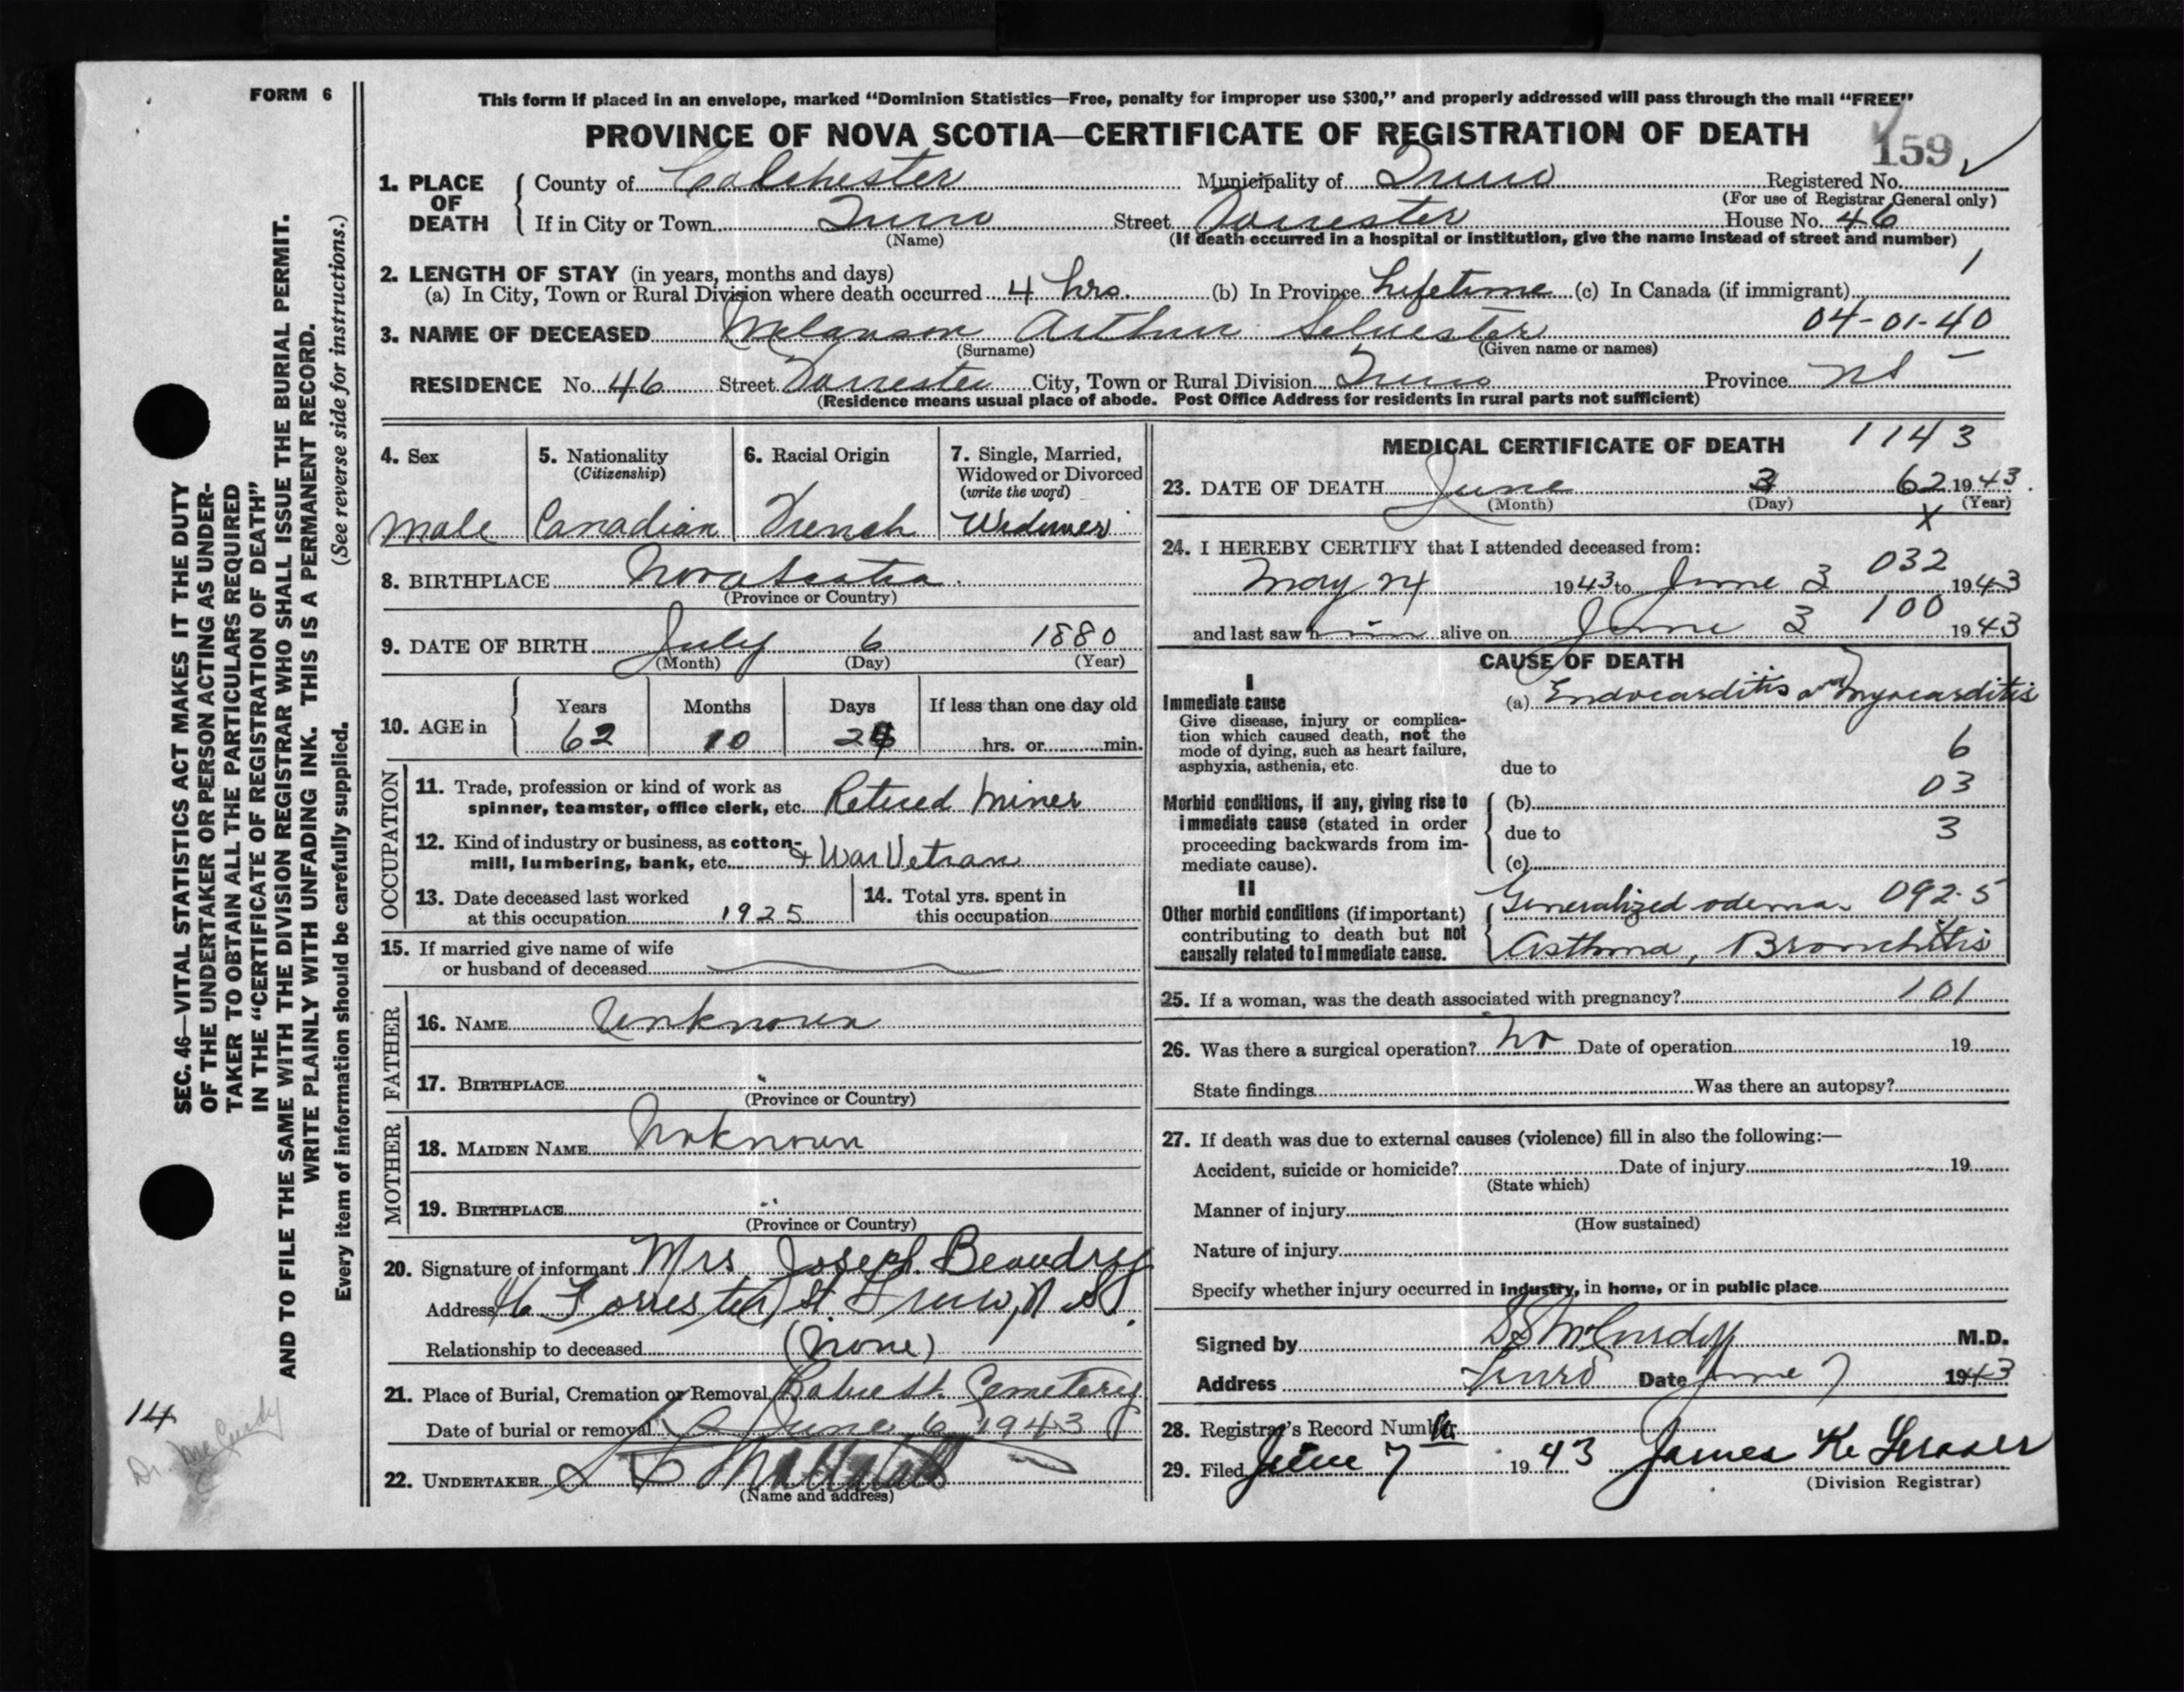 FORM 6
This form if placed in an envelope, marked “Dominion Statistics—Free, penalty for improper use $300,” and properly addressed will pass through the mail “FREE”
PROVINCE OF NOVA SCOTIA—CERTIFICATE OF REGISTRATION OF DEATH
159
1. PLACE OF DEATH
County of Colchester Municipality of Truro Registered No.
(For use of Registrar General only)
If in City or Town Truro Street Forrester House No. 46
(Name) (If death occurred in a hospital or institution, give the name instead of street and number)
1
2. LENGTH OF STAY (in years, months and days)
(a) In City, Town or Rural Division where death occurred 4 hrs. (b) In Province Lifetime (c) In Canada (if immigrant)
04-01-40
3. NAME OF DECEASED Melanson Arthur Selvester
(Surname) (Given name or names)
RESIDENCE No. 46 Street Forrester City, Town or Rural Division Truro Province NS
(Residence means usual place of abode. Post Office Address for residents in rural parts not sufficient)
4. Sex
Male
5. Nationality
(Citizenship)
Canadian
6. Racial Origin
French
7. Single, Married,
Widowed or Divorced
(write the word)
Widower
8. BIRTHPLACE Nova Scotia
(Province or Country)
9. DATE OF BIRTH July 6 1880
(Month) (Day) (Year)
10. AGE in
Years Months Days If less than one day old
62 10 hrs. or min.
OCCUPATION
11. Trade, profession or kind of work as
spinner, teamster, office clerk, etc. Retired Miner
12. Kind of industry or business, as cotton-
mill, lumbering, bank, etc. + War Vetran
13. Date deceased last worked
at this occupation 1925
14. Total yrs. spent in
this occupation
15. If married give name of wife
or husband of deceased
FATHER
16. NAME Unknown
17. BIRTHPLACE "
(Province or Country)
MOTHER
18. MAIDEN NAME Unknown
19. BIRTHPLACE "
(Province or Country)
20. Signature of informant Mrs Joseph Beaudry
Address 46 Forrester St. Truro, N S.
Relationship to deceased (none)
21. Place of Burial, Cremation or Removal Cemetery
Date of burial or removal June 6 1943
22. UNDERTAKER
(Name and address)
MEDICAL CERTIFICATE OF DEATH
1143
23. DATE OF DEATH June 3 62 1943
(Month) (Day) (Year)
X
24. I HEREBY CERTIFY that I attended deceased from:
032
May 24 1943 to June 3 1943
100
and last saw him alive on June 3 1943
CAUSE OF DEATH
I
Immediate cause
Give disease, injury or complica-
tion which caused death, not the
mode of dying, such as heart failure,
asphyxia, asthenia, etc.
(a) Endocarditis and Myocarditis
6
due to
03
Morbid conditions, if any, giving rise to
immediate cause (stated in order
proceeding backwards from im-
mediate cause).
(b)
due to
3
(c)
II
Other morbid conditions (if important)
contributing to death but not
causally related to immediate cause.
Generalized odema. 092.5
Asthma, Bronchitis
25. If a woman, was the death associated with pregnancy? 101
26. Was there a surgical operation? No Date of operation 19
State findings Was there an autopsy?
27. If death was due to external causes (violence) fill in also the following:—
Accident, suicide or homicide? Date of injury 19
(State which)
Manner of injury
(How sustained)
Nature of injury
Specify whether injury occurred in industry, in home, or in public place
Signed by M.D.
Address Truro Date June 7 1943
28. Registrar's Record Number
29. Filed June 7 1943 James K. Fraser
(Division Registrar)
SEC. 46—VITAL STATISTICS ACT MAKES IT THE DUTY
OF THE UNDERTAKER OR PERSON ACTING AS UNDER-
TAKER TO OBTAIN ALL THE PARTICULARS REQUIRED
IN THE “CERTIFICATE OF REGISTRATION OF DEATH”
AND TO FILE THE SAME WITH THE DIVISION REGISTRAR WHO SHALL ISSUE THE BURIAL PERMIT.
WRITE PLAINLY WITH UNFADING INK. THIS IS A PERMANENT RECORD.
Every item of information should be carefully supplied. (See reverse side for instructions.)
14
Dr. McCurdy